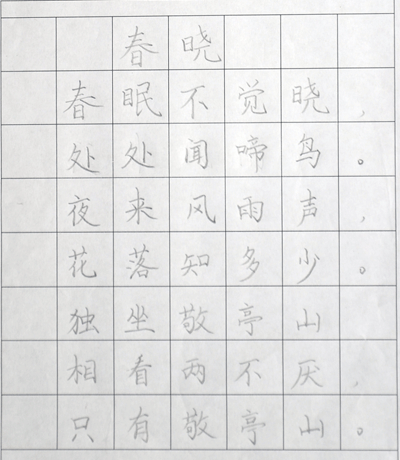 春晓
春眠不觉晓，
处处闻啼鸟。
夜来风雨声，
花落知多少。
独坐敬亭山
相看两不厌，
只有敬亭山。